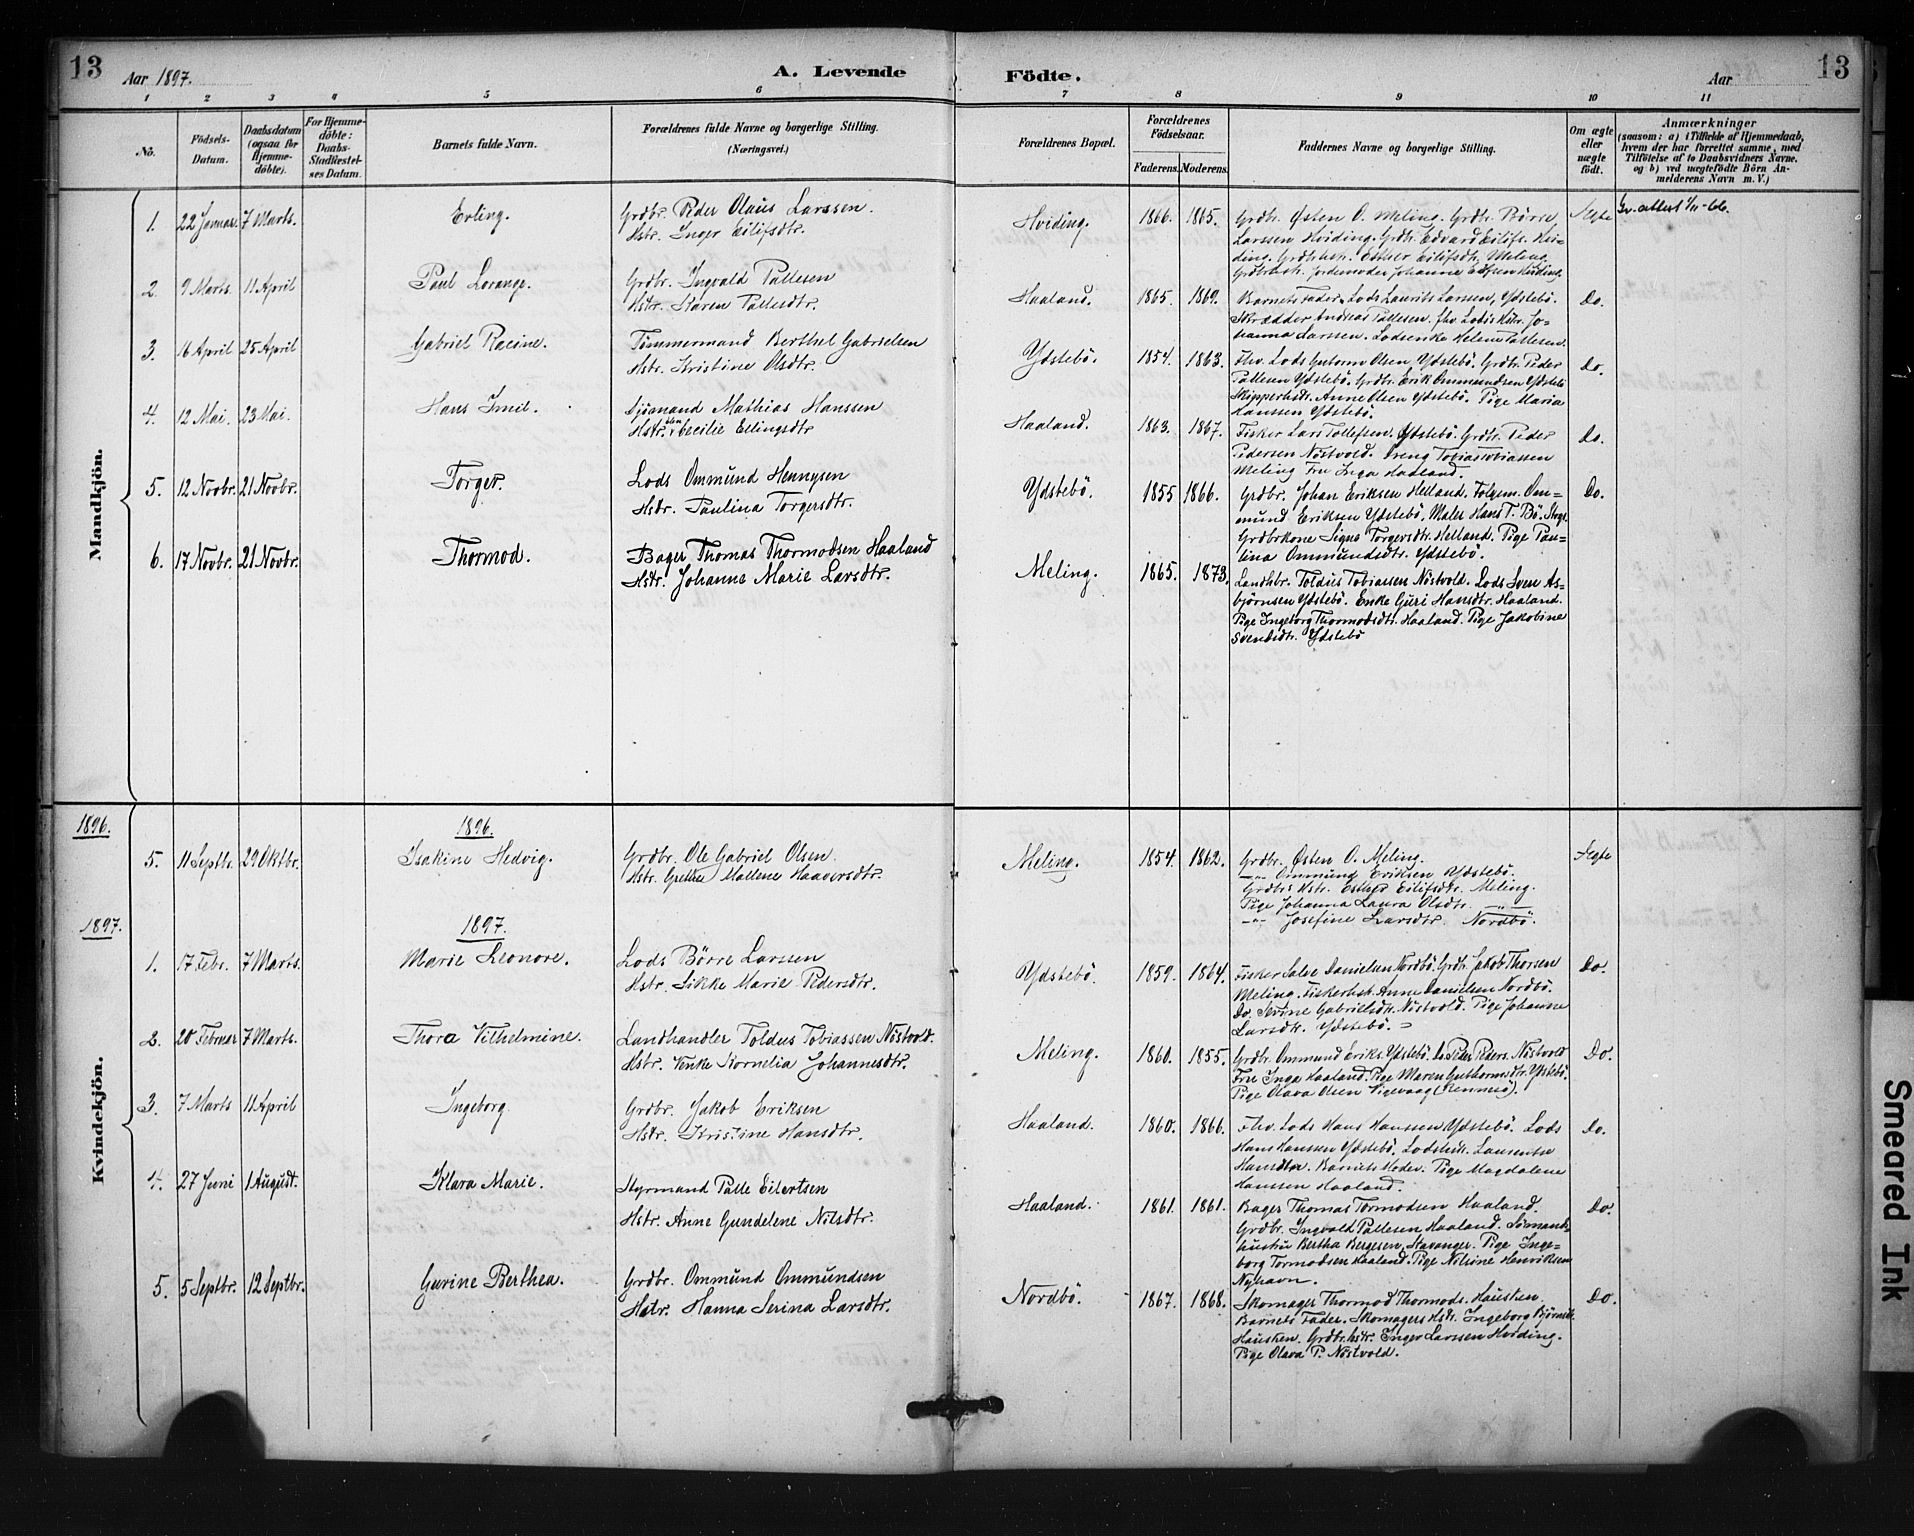 13
Aar 1897.
A. Levende
Födte.
Aar
13
1 2 3 4 5 6 7 8 9 10 11
No.
Födsels-
Datum.
Daabsdatum
(ogsaa for
Hjemme-
döbte).
For Hjemme-
döbte:
Daabs-
Stadfæstel-
ses Datum.
Barnets fulde Navn.
Forældrenes fulde Navne og borgerlige Stilling.
(Næringsvei.)
Forældrenes Bopæl.
Forældrenes
Födselsaar.
Faderens. Moderens.
Faddernes Navne og borgerlige Stilling.
Om ægte
eller
uægte
født.
Anmærkninger
(saasom: a) i Tilfælde af Hjemmedaab,
hvem der har forrettet samme, med
Tilföielse af to Daabsvidners Navne,
og b) ved uægtefödte Börn An-
melderens Navn m. V.)
Mandkjön.
1. 22 Januar. 7 Marts. Erling.
Grdbr. Peder Olaus Larssen.
Hstr. Inger Eilifsdtr.
Hviding. 1866. 1865.
Grdbr. Østen O. Meling. Grdbr. Børre
Larssen Hviding. Grdbr. Edvard Eilifs. Hvi-
ding. Grdbrhstr. Esther Eilifsdtr. Meling.
Ægte
2. 9 Marts. 11 April Paul Lorange.
Grdbr. Ingvald Pallesen
Hstr. Karen Pallesdtr.
Haaland. 1865. 1869.
Barnets Fader. Lods Laurits Larssen, Ydstebö.
Skrædder Andreas Pallesen. fhv. Lods's Hstr. Jo-
hanna Larssen. Lodsenke Helene Pallesen.
Do.
3. 16 April 25 April Gabriel Racine.
Tömmermand Berthel Gabrielsen
Hstr. Kristine Olsdtr.
Ydstebö. 1854. 1863.
Fhv. Lods Gutorm Olsen, Ydstebö. Grdbr. Peder
Pallesen Ydstebö. Grdbr. Erik Ommundsen Ydstebö
Skipperhstr. Anne Olsen Ydstebö. Pige Maria
Hanssen Ydstebö.
Do.
4. 12 Mai. 23 Mai. Hans Emil.
Sjömand Mathias Hanssen
Hstr. Cecilie Ellingsdtr
Haaland. 1863. 1867.
Fisker Lars Tollefsen. Ydstebö. Grdbr. Peder
Pedersen Nöstvold. Dreng Tobias Tobiassen
Meling Fru Inga Haaland.
Do.
5. 12 Novbr. 21 Novbr. Torger.
Lods Ommund Hennysen
Hstr. Paulina Torgersdtr.
Ydstebö. 1855 1866.
Grdbr. Johan Eriksen Helland. Folgem. Om-
mund Eriksen Ydstebö. Maler Hans T. Bö.
Grdbrkone Signe Torgersdtr. Helland. Pige Pau-
lina Ommundsdtr. Ydstebö.
Do.
6. 17 Novbr. 21 Novbr. Thormod.
Bager Thomas Thormodsen Haaland
Hstr. Johanne Marie Larsdtr.
Meling. 1865. 1873.
Landhbr. Toldus Tobiassen Nöstvold. Lods Sven As-
björnsen Ydstebö. Enke Guri Hansdtr. Haaland.
Pige Ingeborg Thormodsdtr. Haaland. Pige Jakobine
Svendsdtr. Ydstebö
Kvindekjön.
1896.
1896.
5. 11 Septbr. 29 Oktbr. Isakine Hedvig.
Grdbr. Ole Gabriel Olsen.
Hstr. Grethe Mallene Haaversdtr.
Meling. 1854. 1862.
Grdbr. Østen O. Meling.
—"— Ommund Eriksen Ydstebö.
Grdbr's Hstr. Esther Eilifsdtr. Meling.
Pige Johanna Laura Olsdtr. —"—
—"— Josefine Larsdtr. Nordbö.
Ægte
1897.
1897.
1. 17 Febr. 7 Marts. Marie Leonore.
Lods Börre Larssen
Hstr. Sikke Marie Pedersdtr.
Ydstebö. 1859. 1864.
Fisker Salve Danielsen Nordbö. Grdbr. Jakob Thorsen
Meling. Fiskerhstr. Anne Danielsen Nordbö.
Do. Serine Gabrielsdtr. Nöstvold. Pige Johanne
Larsdtr. Ydstebö.
Do.
2. 20 Februar 7 Marts. Thora Vilhelmine.
Landhandler Toldus Tobiassen Nöstvold.
Hstr. Venke Kornelia Johannesdtr.
Meling. 1860. 1855.
Grdbr. Ommund Eriks. Ydstebö. Do. Peder Peders. Nöstvold
Fru Inga Haaland. Pige Maren Guthormsdtr. Ydstebö.
Pige Olava Olsen Vigevaag (Rennesö).
Do.
3. 7 Marts 11 April Ingeborg
Grdbr. Jakob Eriksen
Hstr. Kristine Hansdtr.
Haaland. 1860. 1866.
Fhv. Lods Hans Hanssen Ydstebö. Lods
Hans Hanssen Ydstebö. Lodshstr. Laurentse
Hansdtr. Barnets Moder. Pige Magdalene
Hanssen Haaland.
Do.
4. 27 Juni 1 August. Klara Marie.
Styrmand Palle Eilertsen
Hstr. Anne Gundelene Nilsdtr.
Haaland. 1861. 1861.
Bager Thomas Tormodsen Haaland.
Grdbr. Ingvald Pallesen Haaland. Sömands-
hustru Bertha Bergesen, Stavanger. Pige Inge-
borg Tormodsen Haaland. Pige Nilsine Henriksen
Nyhavn.
Do.
5. 5 Septbr. 12 Septbr. Gurine Berthea.
Grdbr. Ommund Ommundsen
Hstr. Hanna Serina Larsdtr.
Nordbö. 1867. 1868.
Skomager Thormod Thormods. Hausken.
Barnets Fader. Skomagers Hstr. Ingeborg
Hausken. Grdbr.hstr. Inger Larssen Hviding.
Pige Olava P. Nöstvold.
Do.
Smeared Ink